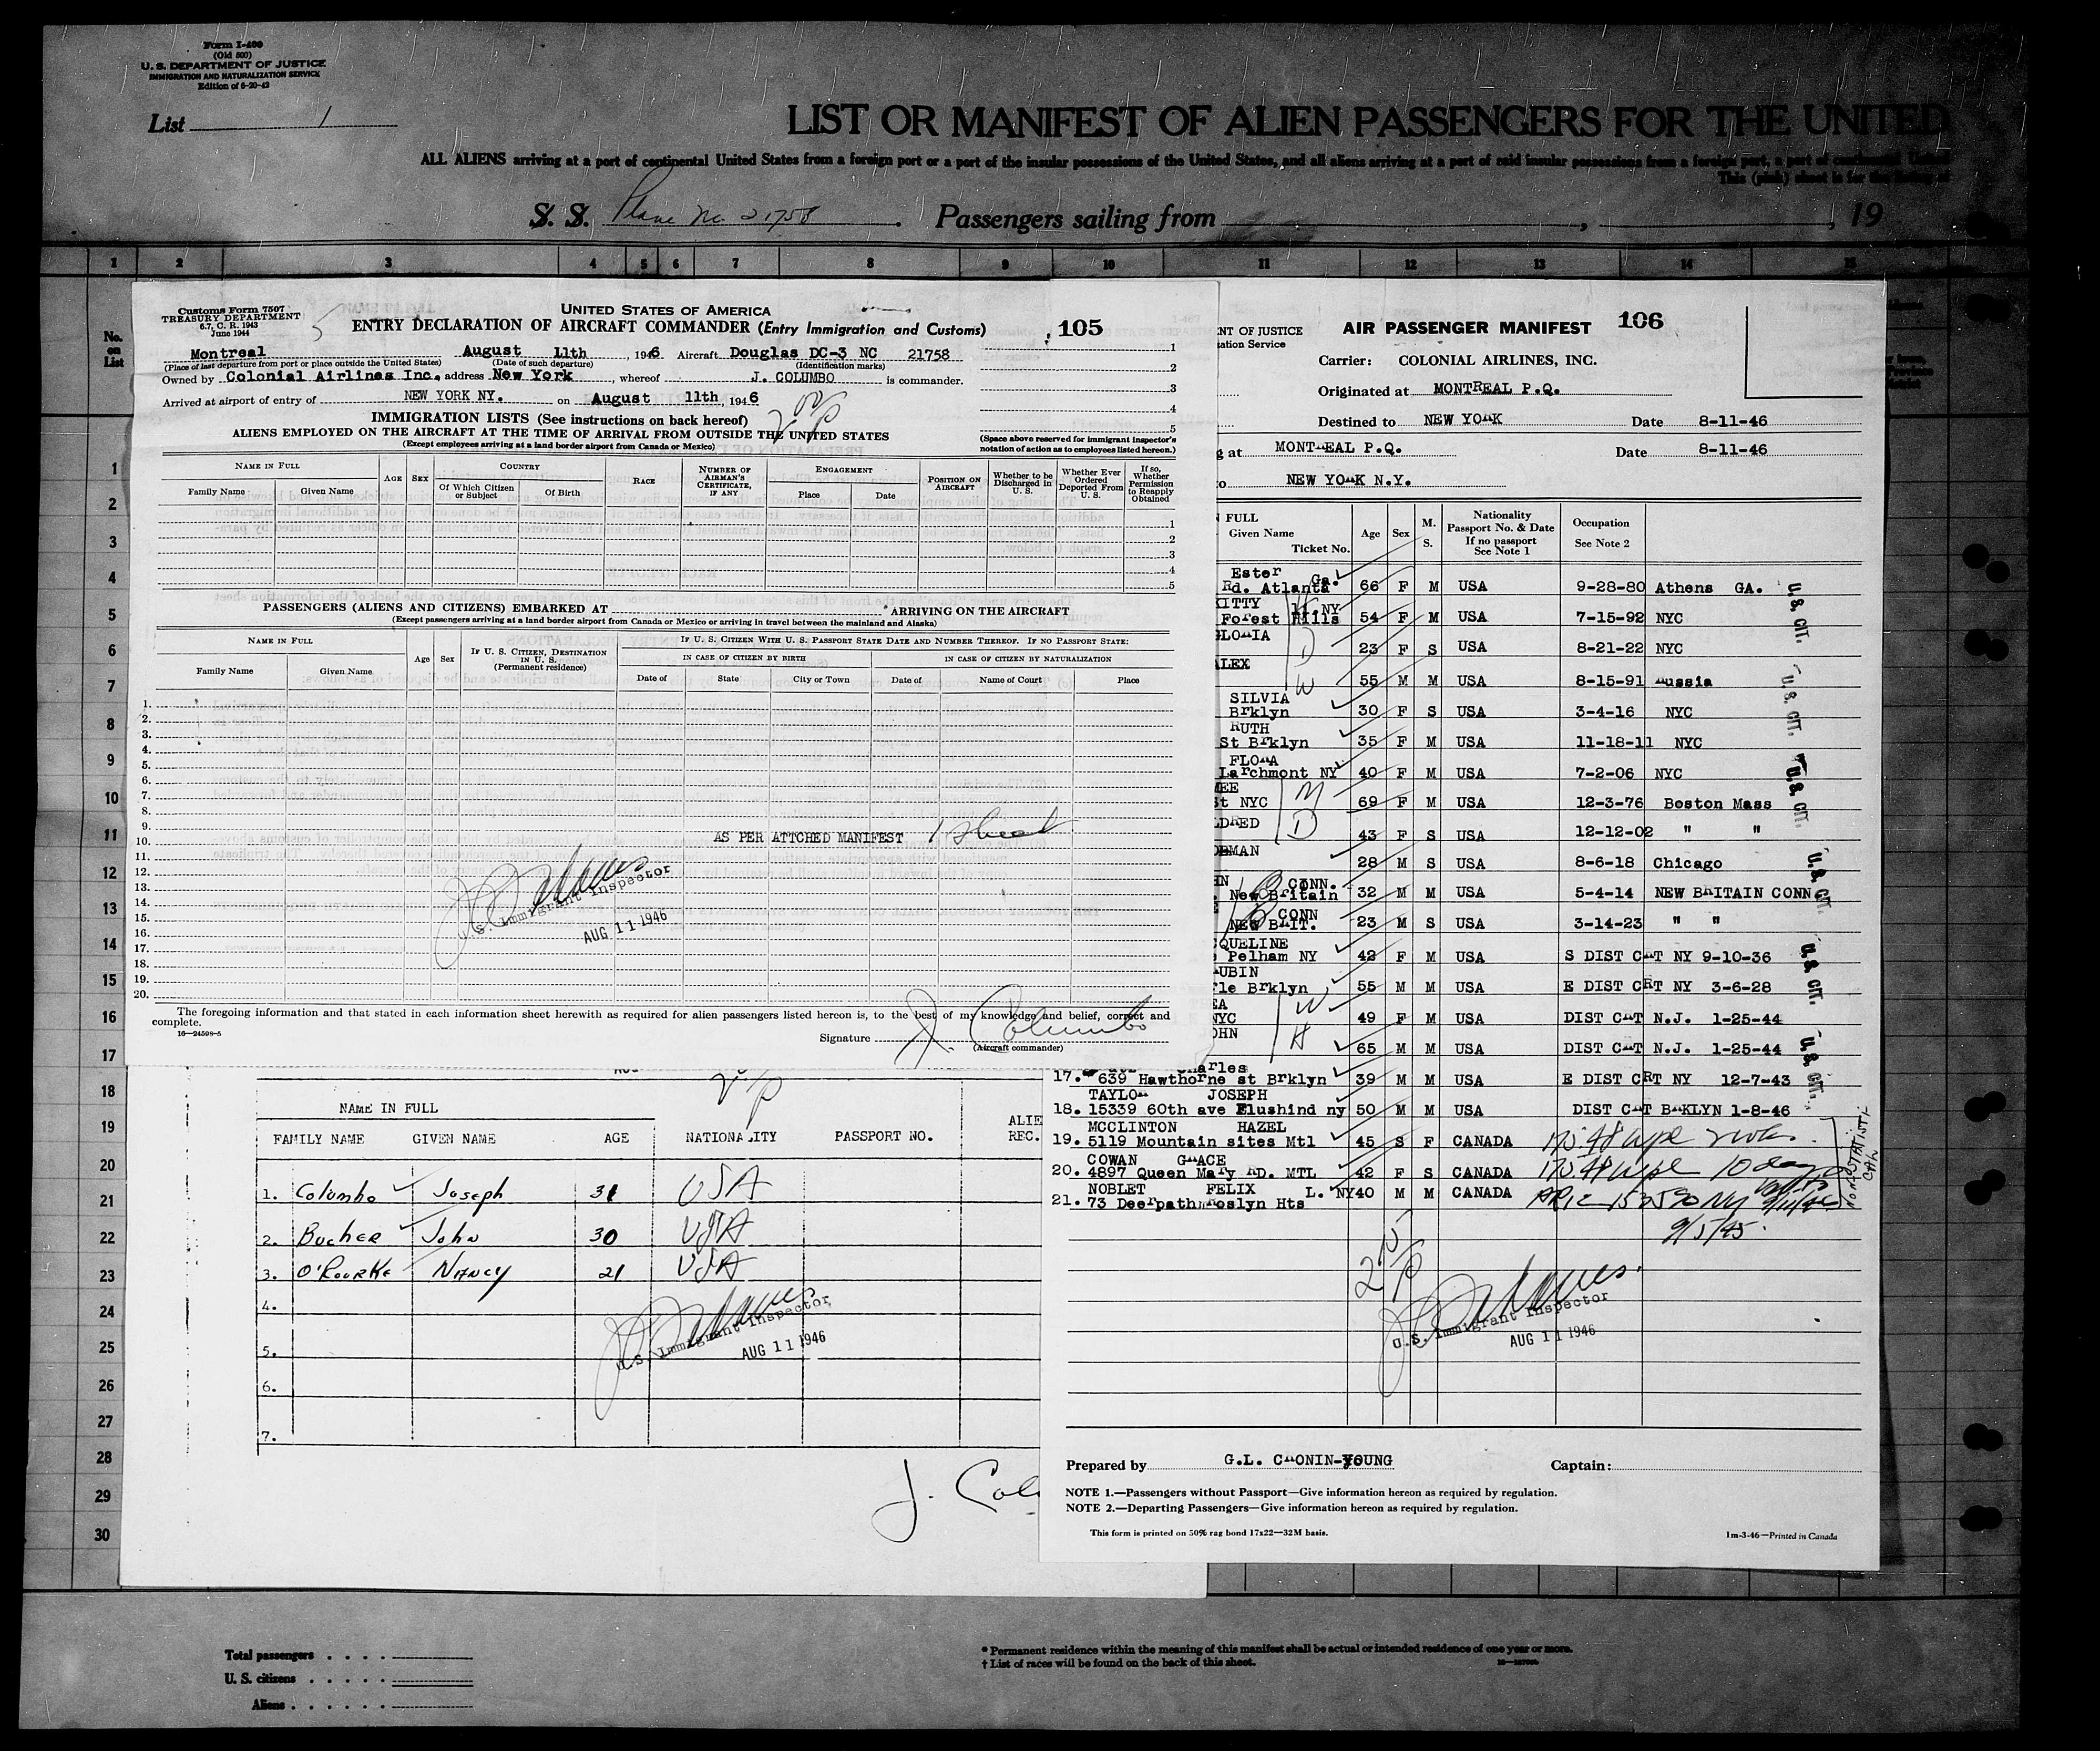 Form I-400
(Old 500)
U. S. DEPARTMENT OF JUSTICE
IMMIGRATION AND NATURALIZATION SERVICE
Edition of 6-20-42
List 1
LIST OR MANIFEST OF ALIEN PASSENGERS FOR THE UNITED
ALL ALIENS arriving at a port of continental United States from a foreign port or a port of the insular possessions of the United States, and all aliens arriving at a port of said insular possessions from a foreign port, a port of continental United
This (pink) sheet is for the listing of
S. S. Plane No. 21758 . Passengers sailing from , , 19
1 2 3 4 5 6 7 8 9 10 11 12 13 14 15
No.
on
List
1
2
3
4
5
6
7
8
9
10
11
12
13
14
15
16
17
18
19
20
21
22
23
24
25
26
27
28
29
30
Customs Form 7507
TREASURY DEPARTMENT
6.7, C. R. 1943
June 1944
UNITED STATES OF AMERICA
ENTRY DECLARATION OF AIRCRAFT COMMANDER (Entry Immigration and Customs)
105
Montreal August 11th , 1946 Aircraft Douglas DC-3 NC 21758
(Place of last departure from port or place outside the United States) (Date of such departure) (Identification marks)
Owned by Colonial Airlines Inc. address New York , whereof J. COLUMBO is commander.
Arrived at airport of entry of NEW YORK NY. on August 11th, 1946
2 00/P
IMMIGRATION LISTS (See instructions on back hereof)
ALIENS EMPLOYED ON THE AIRCRAFT AT THE TIME OF ARRIVAL FROM OUTSIDE THE UNITED STATES
(Except employees arriving at a land border airport from Canada or Mexico)
1
2
3
4
5
(Space above reserved for immigrant inspector's
notation of action as to employees listed hereon.)
NAME IN FULL AGE SEX COUNTRY RACE NUMBER OF AIRMAN'S CERTIFICATE, IF ANY ENGAGEMENT POSITION ON AIRCRAFT Whether to be Discharged in U. S. Whether Ever Ordered Deported From U. S. If so, Whether Permission to Reapply Obtained
Family Name Given Name Of Which Citizen or Subject Of Birth Place Date
1
2
3
4
5
PASSENGERS (ALIENS AND CITIZENS) EMBARKED AT ARRIVING ON THE AIRCRAFT
(Except passengers arriving at a land border airport from Canada or Mexico or arriving in travel between the mainland and Alaska)
NAME IN FULL Age Sex IF U. S. CITIZEN, DESTINATION IN U. S. (Permanent residence) IF U. S. CITIZEN WITH U. S. PASSPORT STATE DATE AND NUMBER THEREOF. IF NO PASSPORT STATE:
IN CASE OF CITIZEN BY BIRTH IN CASE OF CITIZEN BY NATURALIZATION
Family Name Given Name Date of State City or Town Date of Name of Court Place
1.
2.
3.
4.
5.
6.
7.
8.
9.
10. AS PER ATTCHED MANIFEST 1 sheet
11.
12.
13.
14.
15.
16.
17.
18.
19.
20.
U.S. Immigrant Inspector
AUG 11 1946
The foregoing information and that stated in each information sheet herewith as required for alien passengers listed hereon is, to the best of my knowledge and belief, correct and
complete.
16—24598-5
Signature J. Columbo
(Aircraft commander)
NAME IN FULL ALIE
FAMILY NAME GIVEN NAME AGE NATIONALITY PASSPORT NO. REC.
1. Columbo Joseph 31 USA
2. Bucher John 30 USA
3. O'Rourke Nancy 21 USA
4.
5.
6.
7.
U.S. Immigrant Inspector
AUG 11 1946
J. Col
NT OF JUSTICE
ation Service
AIR PASSENGER MANIFEST 106
Carrier: COLONIAL AIRLINES, INC.
Originated at MONTREAL P.Q.
Destined to NEW YORK Date 8-11-46
g at MONTREAL P.Q. Date 8-11-46
o NEW YORK N.Y.
FULL
Given Name
Ticket No. Age Sex M. S. Nationality Passport No. & Date If no passport See Note 1 Occupation See Note 2
Ester
Rd. Atlanta Ga. 66 F M USA 9-28-80 Athens GA.
KITTY
Forest Hills NY 54 F M USA 7-15-92 NYC
GLORIA D
23 F S USA 8-21-22 NYC
ALEX
W 55 M M USA 8-15-91 Russia
SILVIA
Brklyn 30 F S USA 3-4-16 NYC
RUTH
St Brklyn 35 F M USA 11-18-11 NYC
FLORA
Larchmont NY 40 F M USA 7-2-06 NYC
t NYC M 69 F M USA 12-3-76 Boston Mass
DRED D
43 F S USA 12-12-02 " "
28 M S USA 8-6-18 Chicago
CONN.
New Britain 32 M M USA 5-4-14 NEW BRITAIN CONN
CONN
NEW BRIT. 23 M S USA 3-14-23 " "
QUELINE
Pelham NY 42 F M USA S DIST CRT NY 9-10-36
UBIN
le Brklyn 55 M M USA E DIST CRT NY 3-6-28
EA
NYC W 49 F M USA DIST CRT N.J. 1-25-44
OHN H
65 M M USA DIST CRT N.J. 1-25-44
arles
17. 639 Hawthorne st Brklyn 39 M M USA E DIST CRT NY 12-7-43
TAYLOR JOSEPH
18. 15339 60th ave Flushind ny 50 M M USA DIST CRT BRKLYN 1-8-46
MCCLINTON HAZEL
19. 5119 Mountain sites Mtl 45 S F CANADA
COWAN GRACE
20. 4897 Queen Mary RD. MTL 42 F S CANADA 10 days
NOBLET FELIX L. NY
21. 73 Deerpath Roslyn Hts 40 M M CANADA
9/5/45
U.S. CIT.
U.S. CIT.
U.S. CIT.
U.S. CIT.
U.S. CIT.
U.S. CIT.
U.S. Immigrant Inspector
AUG 11 1946
Prepared by G.L. CRONIN-YOUNG Captain:
NOTE 1.—Passengers without Passport—Give information hereon as required by regulation.
NOTE 2.—Departing Passengers—Give information hereon as required by regulation.
This form is printed on 50% rag bond 17x22—32M basis. 1m-3-46—Printed in Canada
Total passengers
U. S. citizens
Aliens
* Permanent residence within the meaning of this manifest shall be actual or intended residence of one year or more.
† List of races will be found on the back of this sheet.